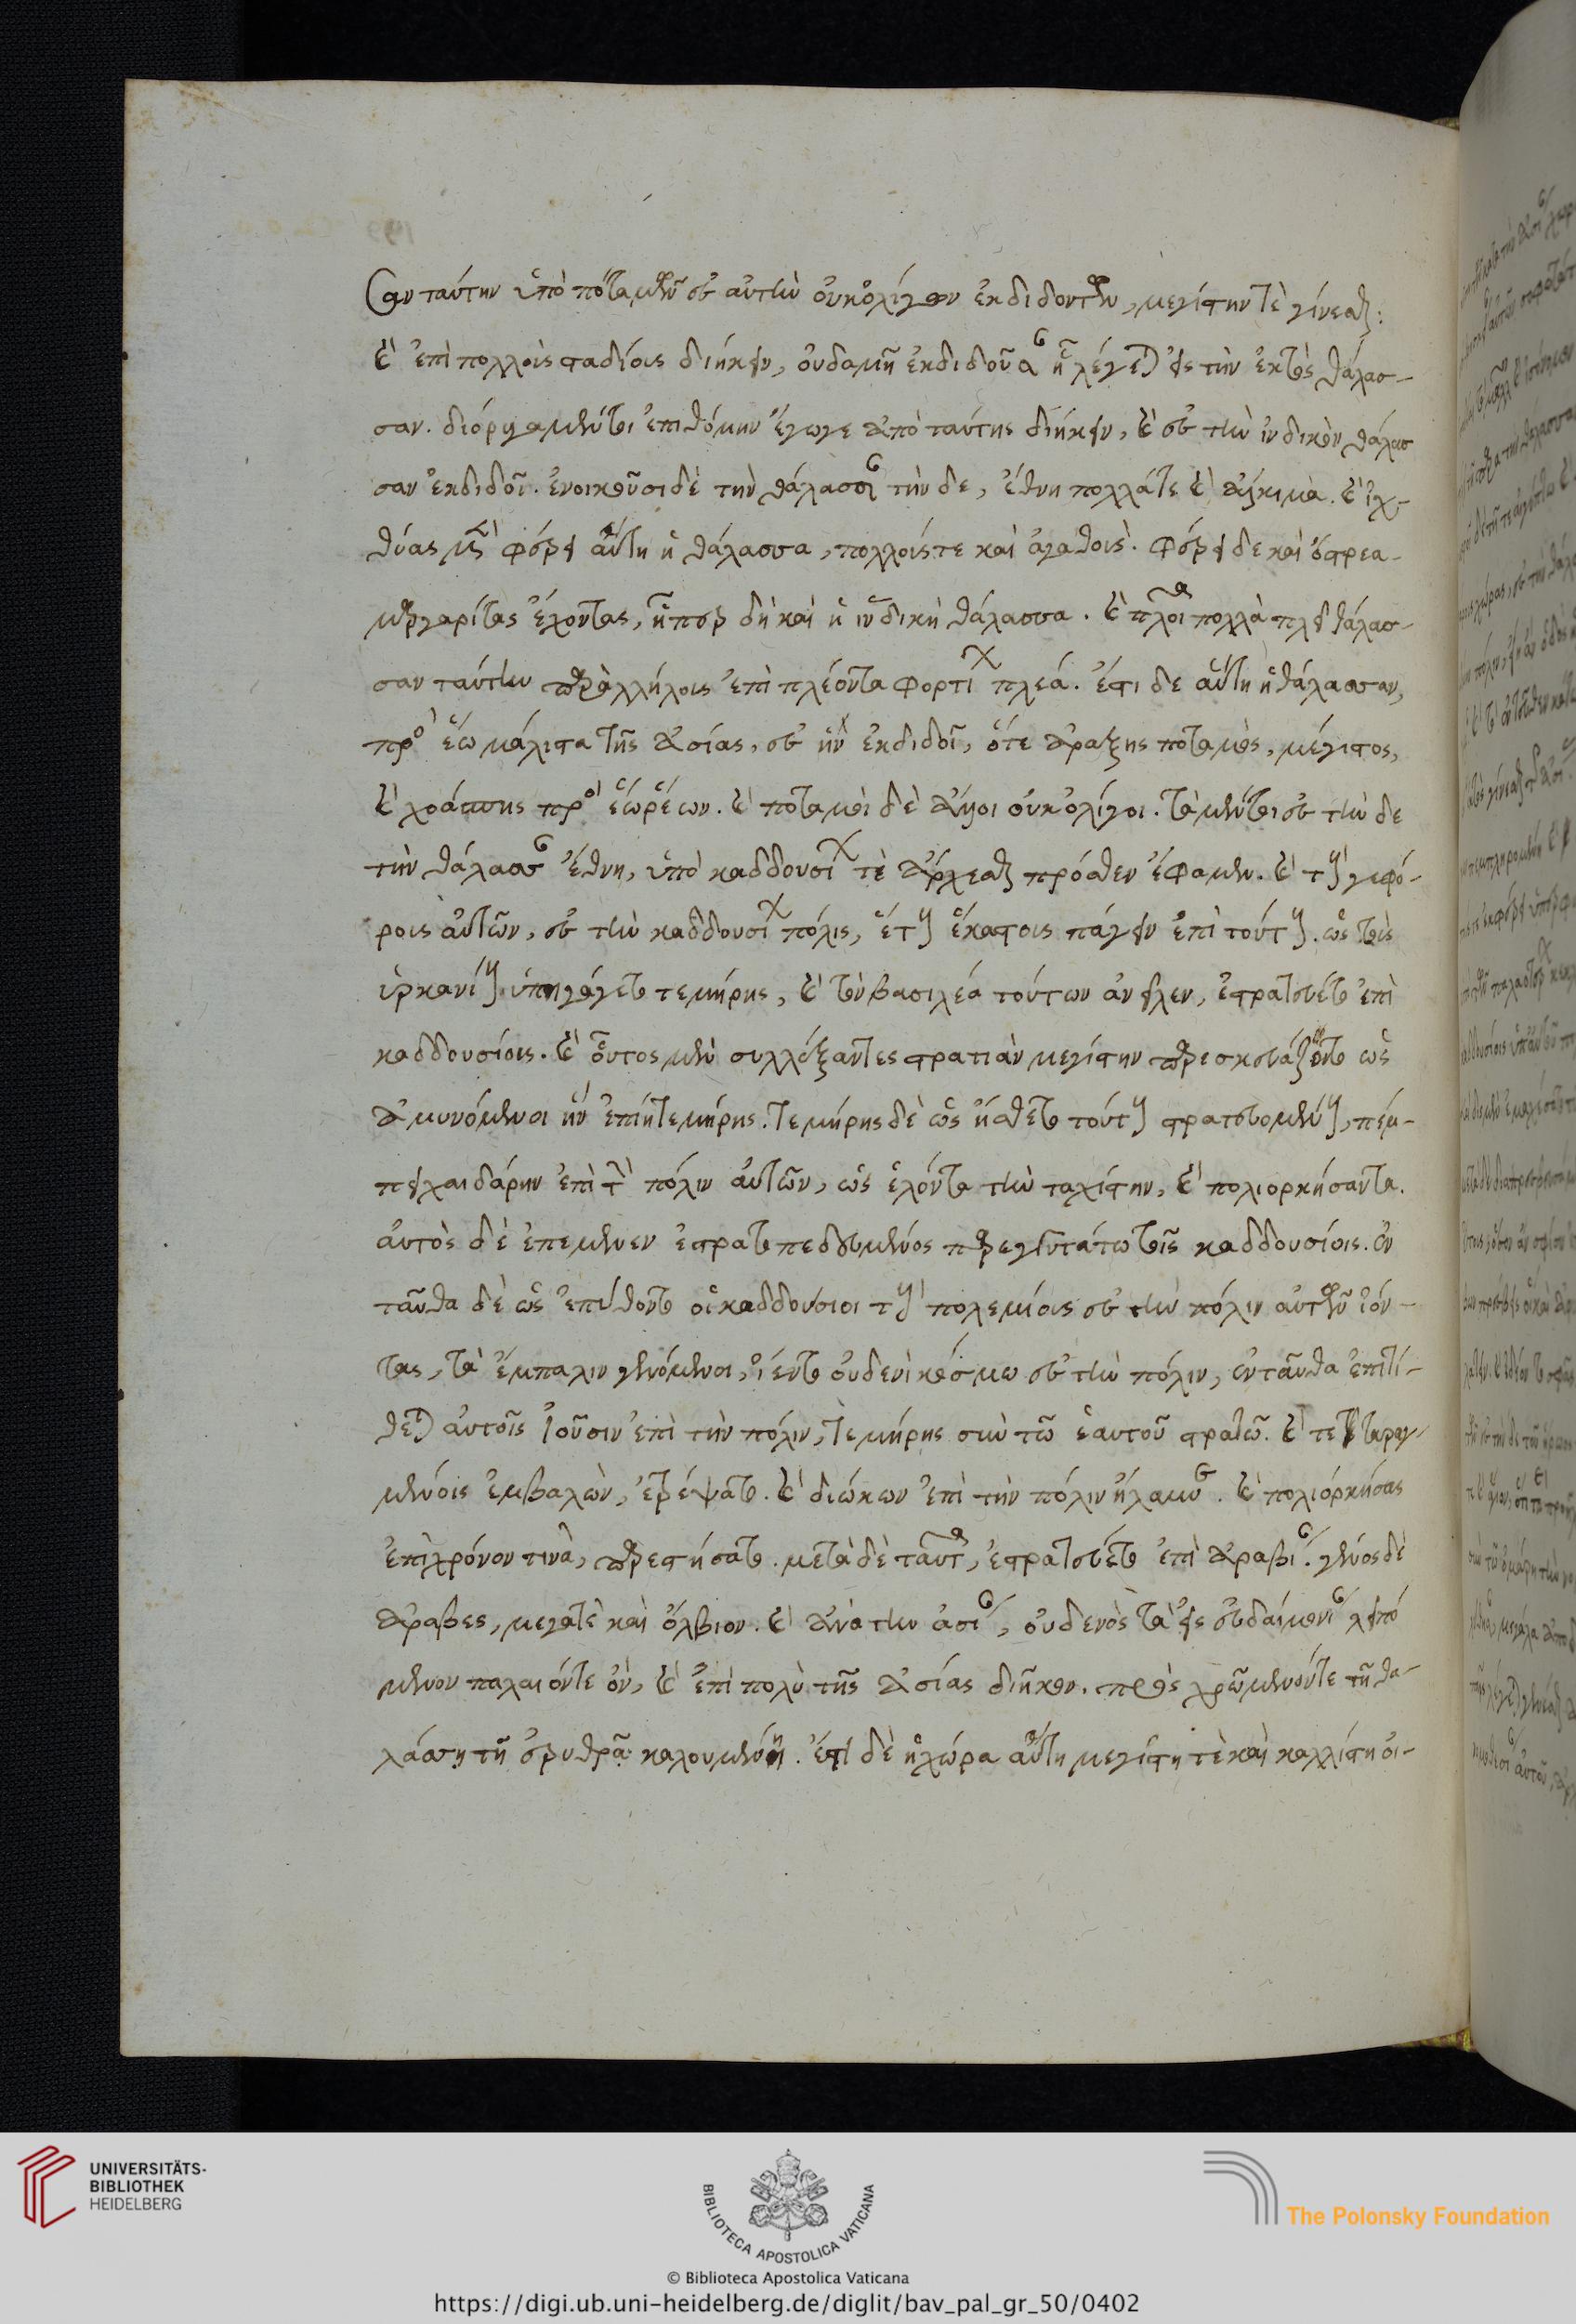 σαν ταύτην ὑπὸ ποταμῶν ἐς αὐτὴν οὐκ ὀλίγων ἐκδιδόντων, μεγίστην τὲ γίνεσθαι:
καὶ ἐπὶ πολλοὺς σταδίους διήκειν, οὐδαμῆ ἐκδιδοῦσαν ᾗ λέγεται εἰς τὴν ἐκτὸς θάλασ-
σαν. διόρυγα μέντοι ἐπυθόμην ἔγωγε ἀπὸ ταύτης διήκειν, καὶ ἐς τὴν ἰνδικὸν θάλασ
σαν ἐκδιδοῖ. ἐνοικοῦσι δὲ τὴν θάλασσαν τήνδε, ἔθνη πολλά τε καὶ ἄλκιμα. καὶ ἰχ-
θύας μὲν φέρει αὕτη ἡ θάλασσα, πολλούς τε καὶ ἀγαθούς. φέρει δὲ καὶ ὄστρεα-
μαργαρίτας ἔχοντας, ᾗπερ δὴ καὶ ἡ ἰνδικὴ θάλασσα. καὶ πλοῖα πολλὰ πλεῖ θάλασ-
σαν ταύτην παρ' ἀλλήλους ἐπιπλέοντα φορτίων πλέα. ἔστι δὲ αὕτη ἡ θάλασσαν,
πρὸς ἕω μάλιστα τῆς ἀσίας, ἐς ἣν ἐκδιδοῖ, ὅτε ἀράξης ποταμὸς, μέγιστος,
καὶ χοάσπης πρὸς ἕω ῥέων. καὶ ποταμοὶ δὲ ἄλλοι οὐκ ὀλίγοι. τὰ μέντοι ἐς τὴν δε
τὴν θάλασσαν ἔθνη, ὑπὸ καδδουσίων τὲ ἄρχεσθαι πρόσθεν ἔφαμεν. καὶ τοὺς γε φό-
ρους αὐτῶν, ἐς τὴν καδδουσίων πόλις, ἔτους ἑκάστου ἀπάγειν ἐπὶ τούτους. ὡς τοὺς
ὑρκανίους ὑπηγάγετο τεμήρης, καὶ τὸν βασιλέα τούτων ἀνεῖλεν, ἐστρατεύετο ἐπὶ
καδδουσίους. καὶ οὗτος μὲν συλλέξαντες στρατιὰν μεγίστην παρεσκευάζοντο ὡς
ἀμυνόμενοι ἢν ἐπίῃ τεμήρης. τεμήρης δὲ ὡς ᾔσθετο τούτους στρατευομένους, πέμ-
πει χαιδάρην ἐπὶ τὴν πόλιν αὐτῶν, ὡς ἑλόντα τὴν ταχίστην, καὶ πολιορκήσαντα.
αὐτὸς δὲ ἐπέμενεν ἐστρατοπεδευμένος παρ' ἐγγυτάτω τοῖς καδδουσίοις. ἐν
ταῦθα δὲ ὡς ἐπύθοντο οἱ καδδούσιοι τοὺς πολεμίους ἐς τὴν πόλιν αὐτῶν ἰόν-
τας, τὰ ἔμπαλιν γενόμενοι, ἵεντο οὐδενὶ κόσμω ἐς τὴν πόλιν, ἐνταῦθα ἐπιτί-
θεται αὐτοῖς ἰοῦσιν ἐπὶ τὴν πόλιν, τεμήρης σὺν τῶ ἑαυτοῦ στρατῶ. καὶ τεταραγ-
μένοις ἐμβαλὼν, ἐτρέψατο. καὶ διώκων ἐπὶ τὴν πόλιν ἤλαυνε. καὶ πολιορκήσας
ἐπὶ χρόνον τινὰ, παρεστήσατο. μετὰ δὲ ταῦτα, ἐστρατεύετο ἐπὶ ἀραβίαν. γένος δὲ
ἄραβες, μέγα τὲ καὶ ὄλβιον. καὶ ἀνὰ τὴν ἀσίαν, οὐδενὸς τὰ εἰς εὐδαιμονίαν λειπό
μενον παλαιόν τε ὂν, καὶ ἐπὶ πολὺ τῆς ἀσίας διῆκον. πρὸς χρώμενόν τε τῇ θα-
λάσσῃ τῇ ἐρυθρᾷ καλουμένῃ. ἔστι δὲ ἡ χώρα αὕτη μεγίστη τὲ καὶ καλλίστη οἰ-
UNIVERSITÄTS-
BIBLIOTHEK
HEIDELBERG
BIBLIOTECA APOSTOLICA VATICANA
© Biblioteca Apostolica Vaticana
The Polonsky Foundation
https://digi.ub.uni-heidelberg.de/diglit/bav_pal_gr_50/0402